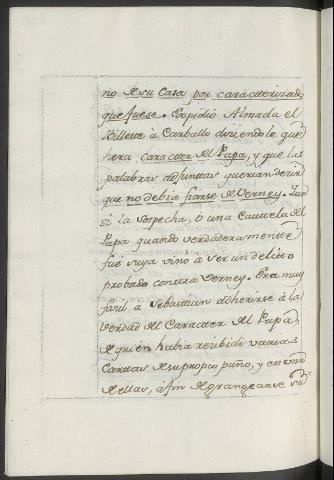 no de su Casa por caracterizado
que fuese. Expidió Almada el
Billette à Carballo diziendole que
hera caracter del Papa, y que las
palabras adjuntas querian dezir
que no debia fiarse de Verney. Qua
si la sospecha, o una cautela del
Papa quando verdaderamente
fuè suya vino à ser un delito
probado contra Verney. Era muy
facil à Sebastian adherirse à la
verdad del Caracter del Papa
de quien habia recibido varias
Cartas de su propio puño, y en una
de ellas, à fin de grangearse su